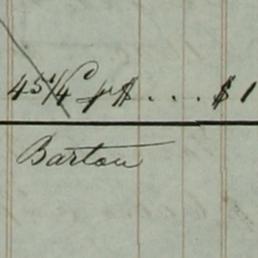 45¼ C p ₶ . . . . $ 1
Barton